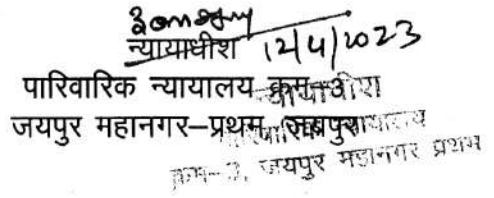 न्यायाधीश 12/4/2023
पारिवारिक न्यायालय क्रम-3
जयपुर महानगर-प्रथम, जयपुर
न्यायाधीश
पारिवारिक न्यायालय
क्रम-3, जयपुर महानगर प्रथम